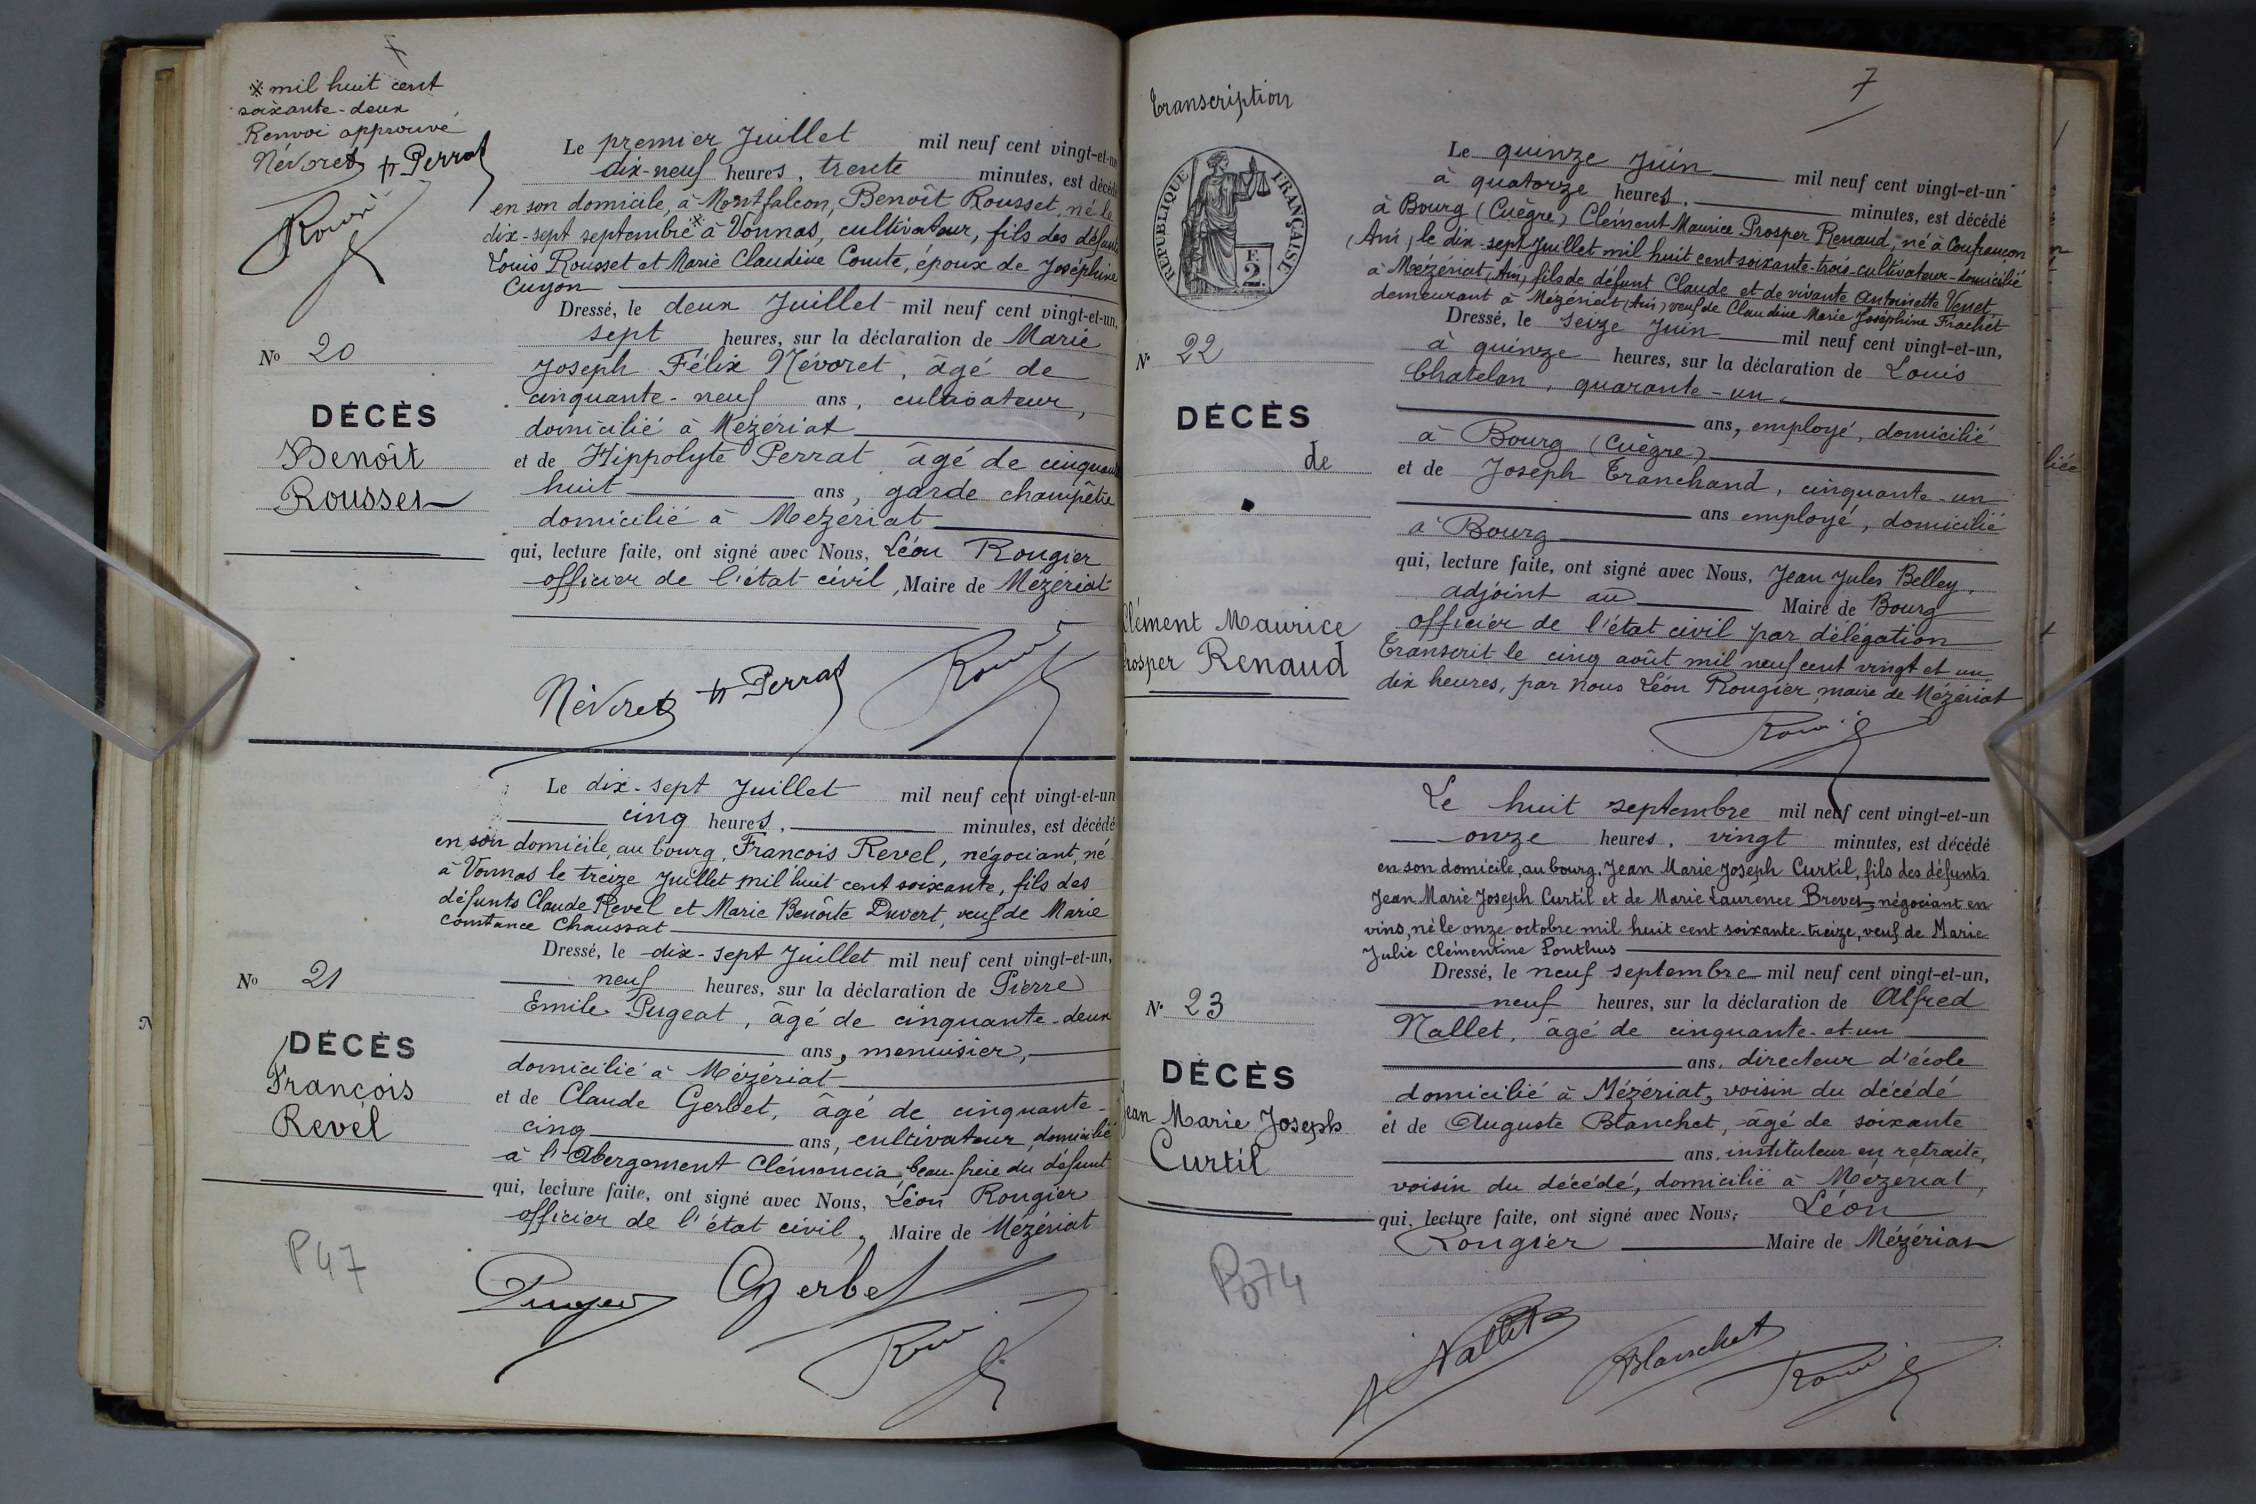 ※ mil huit cent
soixante-deux
Renvoi approuvé
Névoret H Perrat
Le premier Juillet mil neuf cent vingt-et-un
dix-neuf heures, trente minutes, est décédé
en son domicile, à Montfalcon, Benoît Rousset, né le
dix-sept septembre※ à Vonnas, cultivateur, fils des défunts
Louis Rousset et Marie Claudine Comte, époux de Joséphine
Cuyon
Dressé, le deux Juillet mil neuf cent vingt-et-un,
sept heures, sur la déclaration de Marie
Joseph Félix Névoret, âgé de
cinquante-neuf ans, cultivateur,
domicilié à Mézériat
et de Hippolyte Perrat âgé de cinquante
huit ans, garde champêtre
domicilié à Mézériat
qui, lecture faite, ont signé avec Nous, Léon Rougier
officier de l'état civil, Maire de Mézériat
No 20
DÉCÈS
Benoît
Rousset
Névoret H Perrat
Le dix-sept Juillet mil neuf cent vingt-et-un
cinq heures, minutes, est décédé
en son domicile, au bourg, François Revel, négociant, né
à Vonnas le treize Juillet mil huit cent soixante, fils des
défunts Claude Revel et Marie Benoîte Duvert, veuf de Marie
Constance Chaussat
Dressé, le dix-sept Juillet mil neuf cent vingt-et-un,
neuf heures, sur la déclaration de Pierre
Emile Pugeat, âgé de cinquante-deux
ans, menuisier,
domicilié à Mézériat
et de Claude Gerbet, âgé de cinquante-
cinq ans, cultivateur, domicilié
à l'Abergement Clémencia, beau-frère du défunt
qui, lecture faite, ont signé avec Nous, Léon Rougier
officier de l'état civil, Maire de Mézériat
No 21
DÉCÈS
François
Revel
P47
Gerbet
7
Transcription
RÉPUBLIQUE FRANÇAISE
F.
2.
Le quinze Juin mil neuf cent vingt-et-un
à quatorze heures, minutes, est décédé
à Bourg (Cuègre) Clément Maurice Prosper Renaud, né à Confrançon
(Ain), le dix-sept Juillet mil huit cent soixante-trois-cultivateur-domicilié
à Mézériat (Ain) fils de défunt Claude et de vivante Antoinette Venet,
demeurant à Mézériat (Ain) veuf de Claudine Marie Joséphine Frachet
Dressé, le seize Juin mil neuf cent vingt-et-un,
à quinze heures, sur la déclaration de Louis
Chatelan, quarante-un,
ans, employé, domicilié
à Bourg (Cuègre)
et de Joseph Tranchand, cinquante-un
ans employé, domicilié
à Bourg
qui, lecture faite, ont signé avec Nous, Jean Jules Belley,
adjoint au Maire de Bourg
officier de l'état civil par délégation
Transcrit le cinq août mil neuf cent vingt et un
dix heures, par nous Léon Rougier, maire de Mézériat
No 22
DÉCÈS
de
Clément Maurice
Prosper Renaud
Le huit septembre mil neuf cent vingt-et-un
onze heures, vingt minutes, est décédé
en son domicile, au bourg, Jean Marie Joseph Curtil, fils des défunts
Jean Marie Joseph Curtil et de Marie Laurence Brevet, négociant en
vins, né le onze octobre mil huit cent soixante-treize, veuf de Marie
Julie Clémentine Ponthus
Dressé, le neuf septembre mil neuf cent vingt-et-un,
neuf heures, sur la déclaration de Alfred
Nallet, âgé de cinquante-et-un
ans, directeur d'école
domicilié à Mézériat, voisin du décédé
et de Auguste Blanchet, âgé de soixante
ans, instituteur en retraite,
voisin du décédé, domicilié à Mézériat,
qui, lecture faite, ont signé avec Nous, Léon
Rougier Maire de Mézériat
No 23
DÉCÈS
Jean Marie Joseph
Curtil
Nallet Blanchet